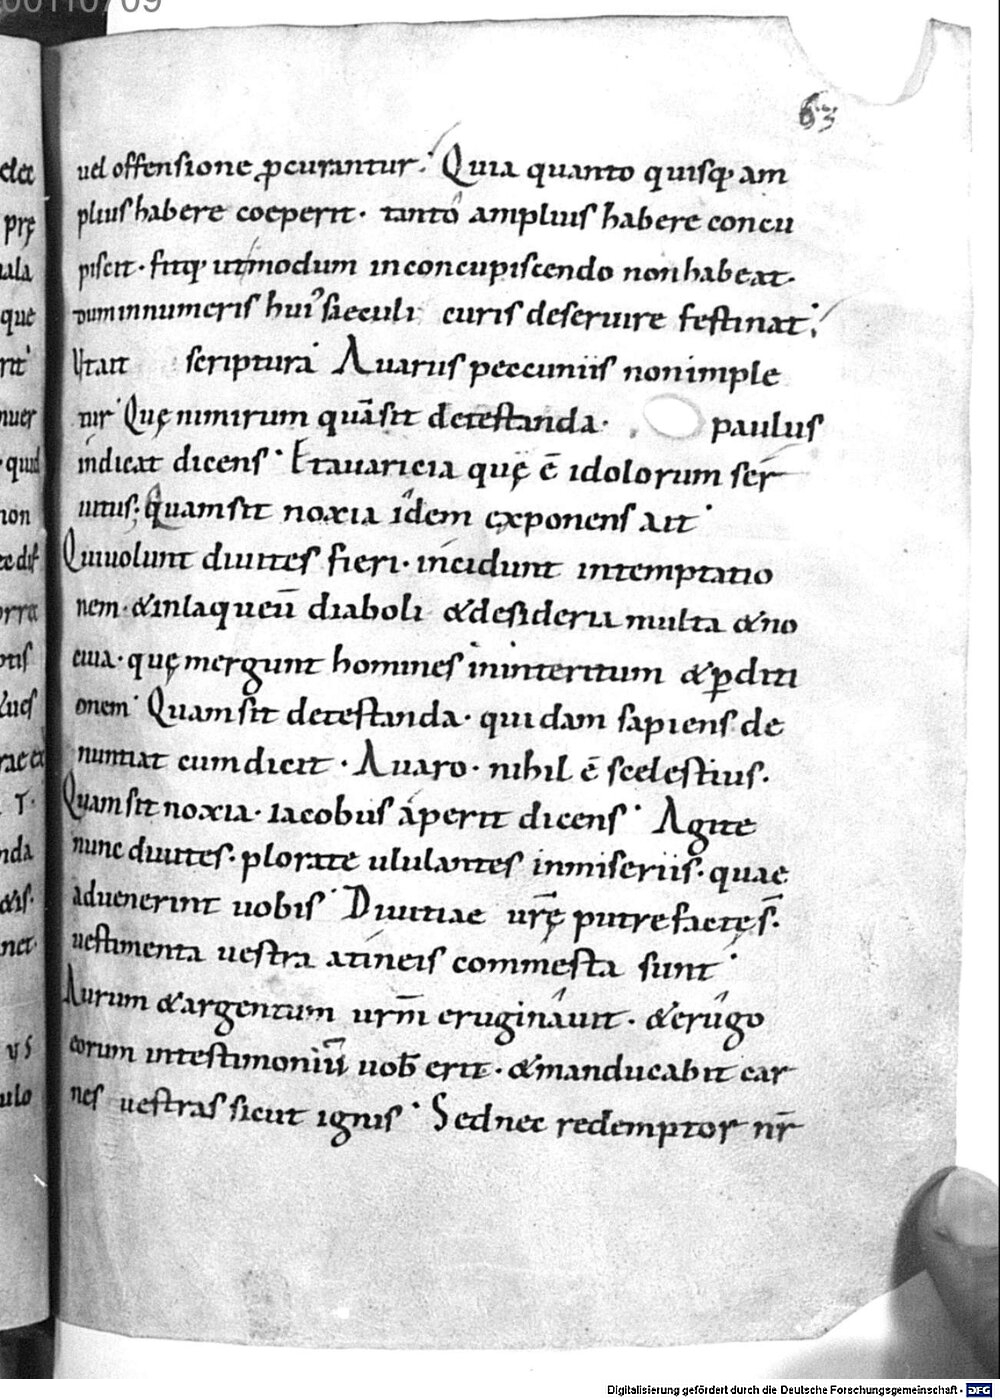 00110709
63
uel offensione ꝓcurantur. Quia quanto quisq; am
plius habere coeperit· tanto amplius habere concu
piscit· fitq; ut modum in concupiscendo non habeat·
dum innumeris hui᾽ saeculi curis deseruire festinat·
Ut ait scriptura Auarus peccuniis non imple
tur Quę nimirum quā sit detestanda· paulus
indicat dicens Et auaricia quę ē idolorum ser
uitus; Quam sit noxia idem exponens ait
Qui uolunt diuites fieri· incidunt in temptatio
nem· & in laqueū diaboli & desideria multa & no
ciua· quę mergunt homines in interitum & ꝑditi
onem Quam sit detestanda· quidam sapiens de
nuntiat cum dicit· Auaro· nihil ē scelestius·
Quam sit noxia· iacobus aperit dicens Agite
nunc diuites· plorate ululantes in miseriis· quae
aduenerint uobis Diuitiae urę̄ putrefactę s̄·
uestimenta uestra a tineis commesta sunt
Aurum & argentum urm̄ eruginauit· & erugo
eorum in testimoniū uob̄ erit· & manducabit car
nes uestras sicut ignis Sed nec redemptor nr̄
Digitalisierung gefördert durch die Deutsche Forschungsgemeinschaft - DFG